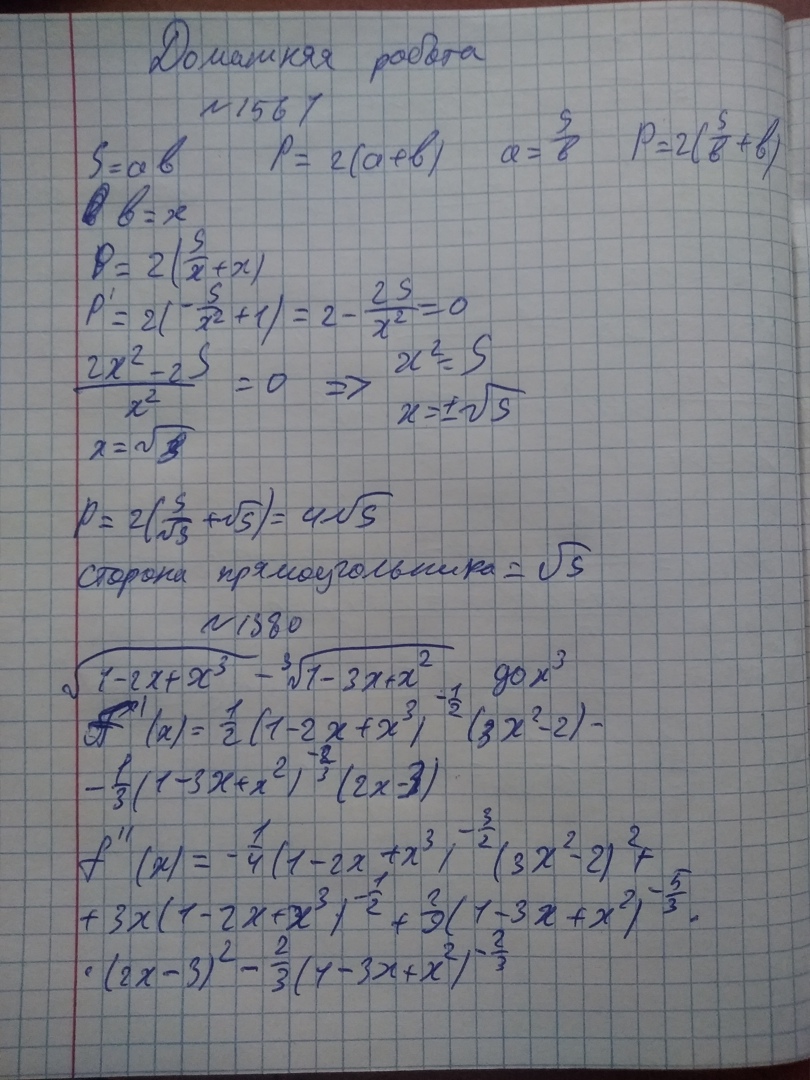 Домашняя работа
№1561
S=ab P= 2(a+b) a=S/b P=2(S/b+b)
b=x
P= 2(S/x+x)
P'= 2(-S/x²+1)=2-2S/x²=0
(2x²-2S)/x² =0 => x²=S
x=±√S
x=√S
P= 2(S/√S+√S)= 4√S
сторона прямоугольника= √S
№1380
√(1-2x+x³) - ³√(1-3x+x²) до x³
f'(x)= 1/2(1-2x+x³)^(-1/2) (3x²-2)-
-1/3(1-3x+x²)^(-2/3) (2x-3)
f''(x)= -1/4(1-2x+x³)^(-3/2) (3x²-2)²+
+3x(1-2x+x³)^(-1/2) + 2/9(1-3x+x²)^(-5/3)·
·(2x-3)²-2/3(1-3x+x²)^(-2/3)